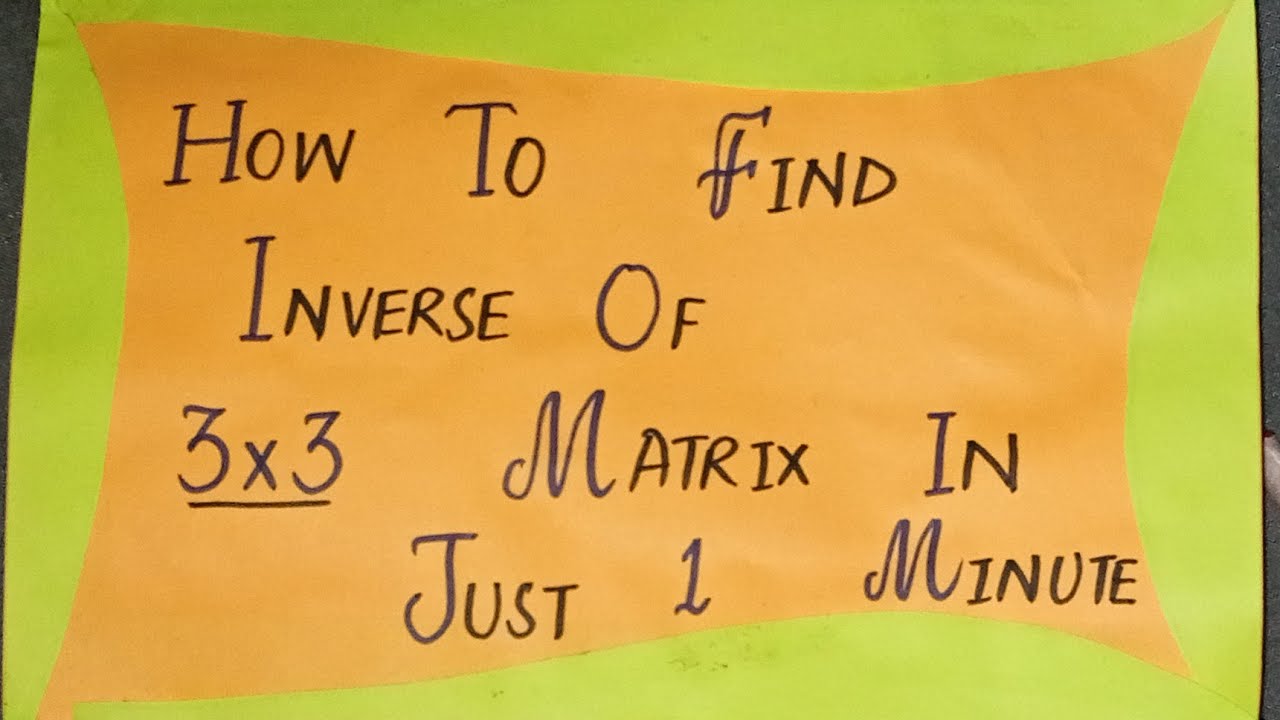 How To Find
Inverse Of
3x3 Matrix In
Just 1 Minute